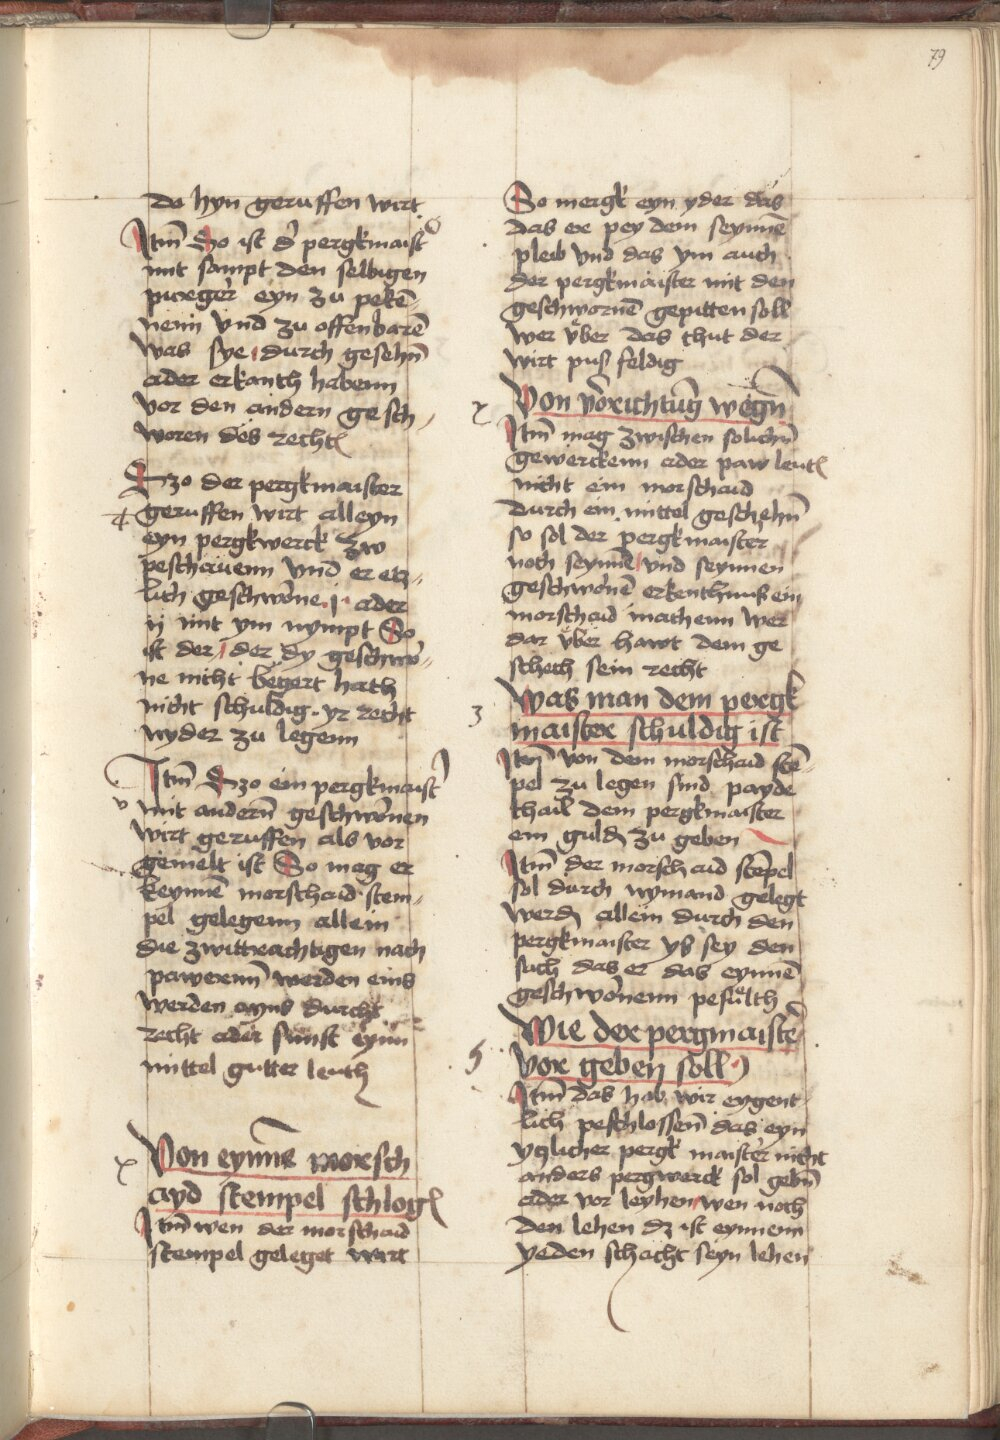 79
do hyn geruffen wirt
Itm̄ So ist d' pergkmaist'
mit sampt den selbigen
purger eyn zu pekē-
nenn vnd zu offenbarē
was sye durch gesehn̄
ader erkanth habenn
vor den andern gesch-
woren des rechtꝭ
Szo der pergkmaister
geruffen wirt alleyn
eyn pergkwerck zw
peschauenn vnd er etz-
lich geschwōne j ader
ij mit ym nympt So
ist der der dy geschwo-
ne nicht begert hath
nicht schuldig yr recht
nyder zu legenn
v
Itm̄ Szo ein pergkmaist'
mit andern̄ geschwōnen
wirt geruffen als vor
gemelt ist So mag er
keynnē morschaid stem-
pel gelegenn allein
die zwittrachtigen nach
pawerenn̄ werden eins
werden ayns durcht
recht ader sunst eynn
mittel gutter leuth
x
Von eynnē morsch
ayd stempel schlogꝭ
Itm̄ wen der morschaid
stempel geleget wirt
So mergk eyn yder das
das er pey dem seynnē
pleib vnd das ym auch
der pergkmaister mit den
geschwornē gepitten soll
wer vber das thut der
wirt puß feldig
x
Von vorichtūg wegn̄
Itm̄ mag zwischen solichn̄
gewerckenn ader paw leutꝭ
nicht ein morschaid
durch ein mittel geschehn̄
so sol der pergkmaister
noch seynnē vnd seynnen
geschwōnē erkenthnuß ein
morschaid machenn wer
dar vber hawt dem ge
schech sein recht
3
Was man dem pergk
maister schuldig ist
Itm̄ von dem morschaid stē-
pel zu legen sind payde
thail dem pergkmaister
ein guldꝭ zu geben
Itm̄ der morschaid stēpel
sol durch nymand gelegt
werdꝭ allein durch den
pergkmaister yß sey den
sach das er das eynnē
geschwōnenn pefulth
5
Wie der pergmaistē
vor geben soll
Itm̄ das hab wir eygent
lich peschlossen̄ das eyn
yglicher pergk maister nicht
anders pergwerck sol gebn̄
ader vor leyhen wen noch
den lehen dz ist eynnem
yeden schacht seyn lehen